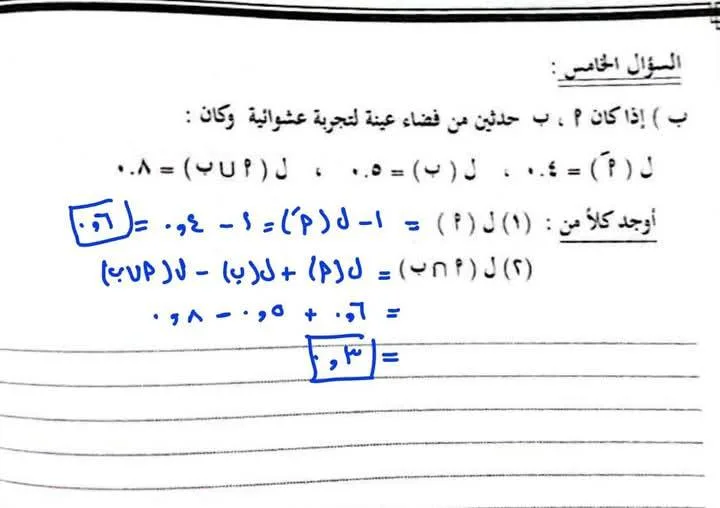 السؤال الخامس :
ب ) إذا كان م ، ب حدثين من فضاء عينة لتجربة عشوائية وكان :
ل ( مَ ) = ٠.٤ ، ل ( ب ) = ٠.٥ ، ل ( م ∪ ب ) = ٠.٨
أوجد كلاً من : (١) ل ( م ) = ١ - ل (مَ) = ١ - ٠,٤ = ٠,٦
(٢) ل ( م ∩ ب ) = ل(م) + ل(ب) - ل(م∪ب)
= ٠,٦ + ٠,٥ - ٠,٨
= ٠,٣